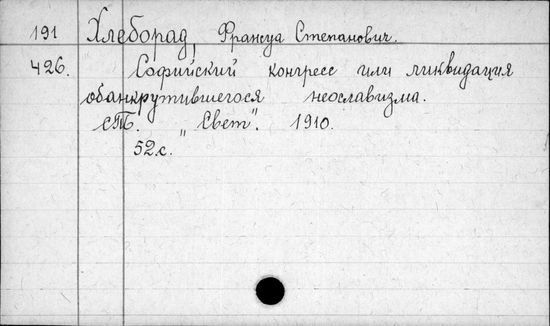 191 Хлеборад, Франца Степанович.
426. Софийский конгресс или ликвидация
обанкрутившегося неославизма.
СПБ. „Свет". 1910.
52.с.